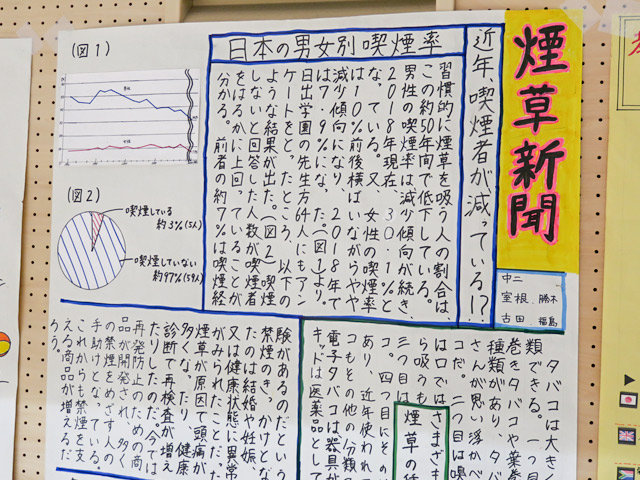 煙草新聞
中二
室根 勝木
古田 福島
近年、喫煙者が減っている!?
日本の男女別喫煙率
習慣的に煙草を吸う人の割合は
この約50年間で低下している。
男性の喫煙率は減少傾向が続き、
2018年現在、30.1%と
なっている。又、女性の喫煙率
は10%前後横ばいながらやや
減少傾向になり、2018年で
は7.9%になった。(図1)より。
日出学園の先生方64人にもアン
ケートをとったところ、以下の
ような結果が出た。(図2)喫煙
しないと回答した人数が喫煙者
をはるかに上回っていることが
分かる。前者の約7%は喫煙経
(図1)
(図2)
喫煙している
約3%(5人)
喫煙していない
約97%(59人)
験があるのだという
禁煙のきっかけとな
たのは結婚や妊娠、
又は健康状態に異常
がみられたことだった
煙草が原因で頭痛が
多くなったり、健康
診断で再検査が増え
たりしたのだ。今では
再発防止のための商
品が開発され、多く
の禁煙をめざす人の
手助けとなっている。
これからも禁煙を支
える商品が増えるだ
ろう。
タバコは大きく
類できる。一つ目
巻きタバコや葉巻
種類があり、タバ
さんが思い浮かべ
コだ。二つ目は嗅
は口では
ら吸うも
三つ目は
コ。四つ目にその
コもその他の分類
あり、近年使われ
電子タバコは器具が
キッドは医薬品として
さまざま
煙草の種